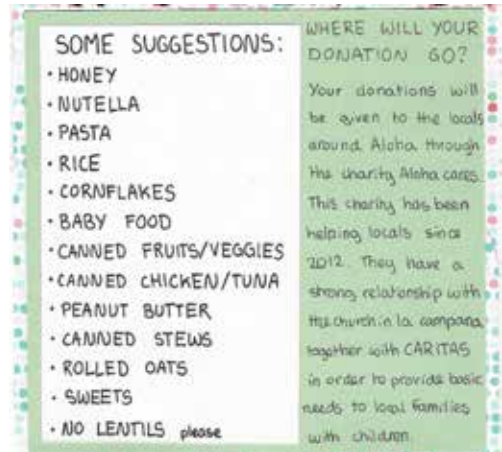 SOME SUGGESTIONS:
• HONEY
• NUTELLA
• PASTA
• RICE
• CORNFLAKES
• BABY FOOD
• CANNED FRUITS/VEGGIES
• CANNED CHICKEN/TUNA
• PEANUT BUTTER
• CANNED STEWS
• ROLLED OATS
• SWEETS
• NO LENTILS please
WHERE WILL YOUR
DONATION GO?
Your donations will
be given to the locals
around Aloha through
the charity Aloha cares.
This charity has been
helping locals since
2012. They have a
strong relationship with
the church in la campana
together with CARITAS
in order to provide basic
needs to local families
with children.